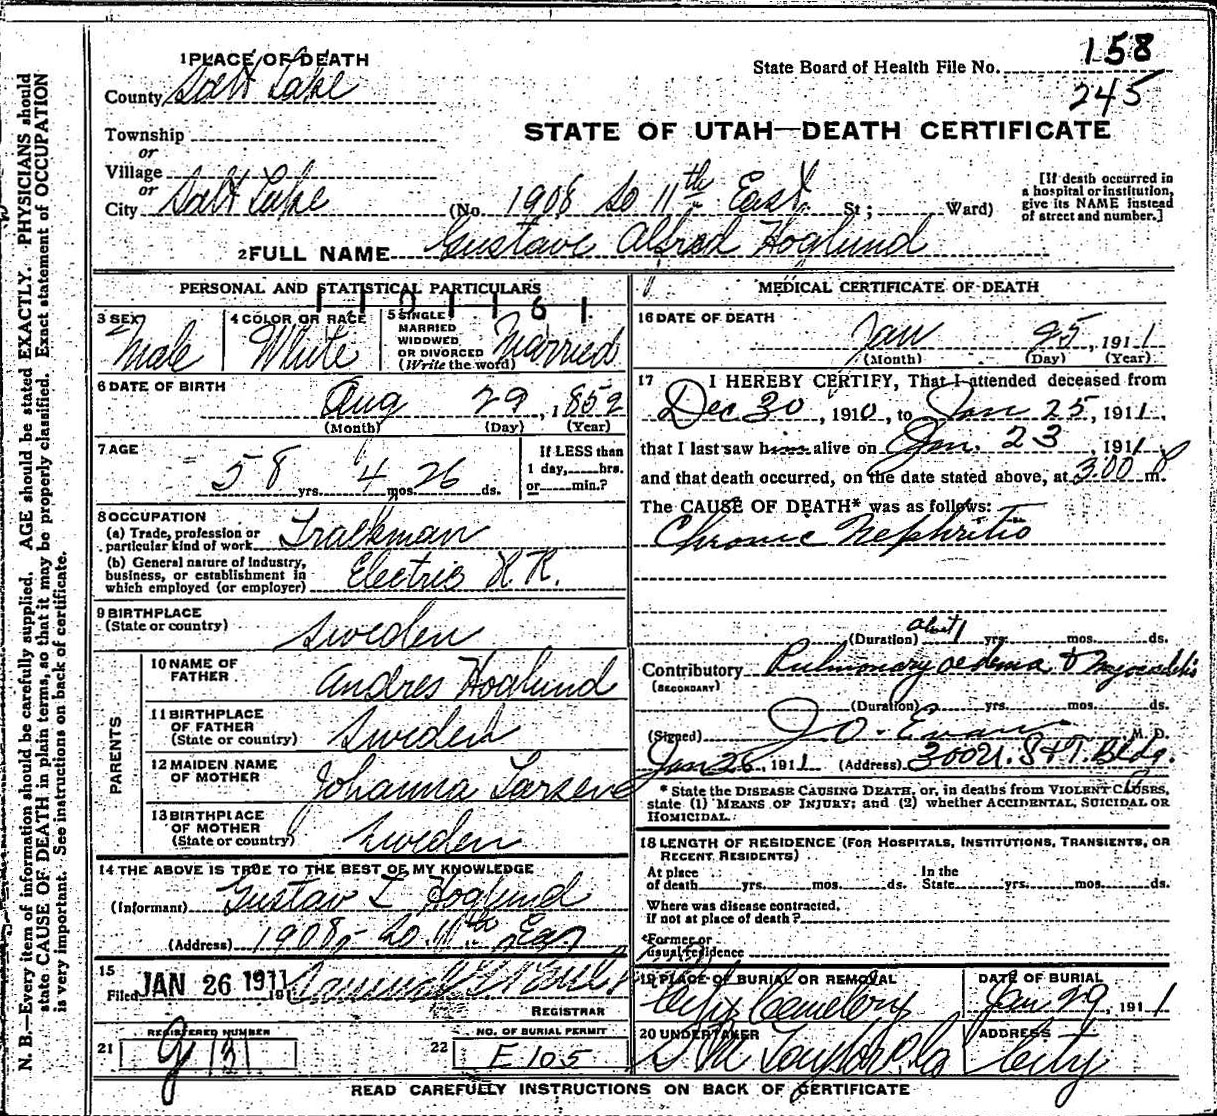 1 PLACE OF DEATH
State Board of Health File No. 158
County Salt Lake
245
Township
STATE OF UTAH—DEATH CERTIFICATE
or
Village
or
City Salt Lake (No. 1908 So 11th East St; Ward)
[If death occurred in a hospital or institution, give its NAME instead of street and number.]
2 FULL NAME Gustave Alfred Hoglund
PERSONAL AND STATISTICAL PARTICULARS
3 SEX Male
4 COLOR OR RACE White
5 SINGLE MARRIED WIDOWED OR DIVORCED (Write the word) Married
6 DATE OF BIRTH
Aug 29, 1852
(Month) (Day) (Year)
7 AGE
58 yrs. 4 mos. 26 ds.
If LESS than 1 day, hrs. or min.?
8 OCCUPATION
(a) Trade, profession or particular kind of work Trackman
(b) General nature of industry, business, or establishment in which employed (or employer) Electric R.R.
9 BIRTHPLACE
(State or country) Sweden
PARENTS
10 NAME OF FATHER Andres Hoglund
11 BIRTHPLACE OF FATHER (State or country) Sweden
12 MAIDEN NAME OF MOTHER Johanna Larsen
13 BIRTHPLACE OF MOTHER (State or country) Sweden
14 THE ABOVE IS TRUE TO THE BEST OF MY KNOWLEDGE
(Informant) Gustav L Hoglund
(Address) 1908 - So. 11th East
15
Filed JAN 26 1911 191
REGISTRAR
21 REGISTERED NUMBER
22 NO. OF BURIAL PERMIT E 105
MEDICAL CERTIFICATE OF DEATH
16 DATE OF DEATH
Jan 25, 1911
(Month) (Day) (Year)
17 I HEREBY CERTIFY, That I attended deceased from
Dec 30, 1910, to Jan 25, 1911,
that I last saw h alive on Jan. 23, 1911,
and that death occurred, on the date stated above, at 3.00 P m.
The CAUSE OF DEATH* was as follows:
Chronic Nephritis
(Duration) about 1 yrs. mos. ds.
Contributory Pulmonary oedema & Myocarditis
(SECONDARY)
(Duration) yrs. mos. ds.
(Signed) J O. Evan M.D.
Jan 26, 1911 (Address) Bldg.
* State the DISEASE CAUSING DEATH, or, in deaths from VIOLENT CAUSES,
state (1) MEANS OF INJURY; and (2) whether ACCIDENTAL, SUICIDAL OR
HOMICIDAL.
18 LENGTH OF RESIDENCE (FOR HOSPITALS, INSTITUTIONS, TRANSIENTS, OR
RECENT RESIDENTS)
At place of death yrs. mos. ds. In the State yrs. mos. ds.
Where was disease contracted,
if not at place of death?
Former or
usual residence
19 PLACE OF BURIAL OR REMOVAL City Cemetery
DATE OF BURIAL Jan 29, 1911
20 UNDERTAKER S M Taylor & Co
ADDRESS City
READ CAREFULLY INSTRUCTIONS ON BACK OF CERTIFICATE
N. B.—Every item of information should be carefully supplied. AGE should be stated EXACTLY. PHYSICIANS should
state CAUSE OF DEATH in plain terms, so that it may be properly classified. Exact statement of OCCUPATION
is very important. See instructions on back of certificate.